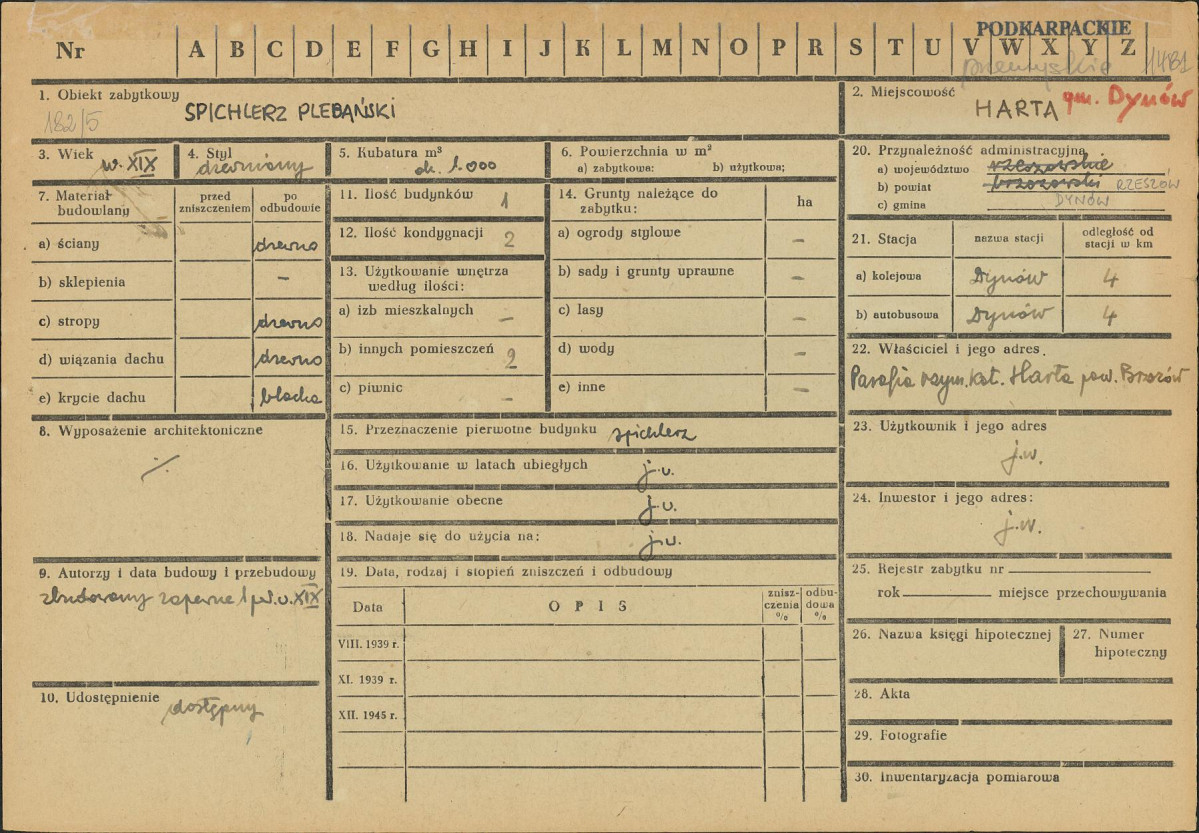 PODKARPACKIE
Nr A B C D E F G H I J K L M N O P R S T U V W X Y Z
przemyskie 1481
1. Obiekt zabytkowy
182/5 SPICHLERZ PLEBAŃSKI
2. Miejscowość
HARTA gm. Dynów
3. Wiek
w. XIX
4. Styl
drewniany
5. Kubatura m³
ok. 1.000
6. Powierzchnia w m²
a) zabytkowa: b) użytkowa;
7. Materiał budowlany
przed zniszczeniem
po odbudowie
a) ściany drewno
b) sklepienia –
c) stropy drewno
d) wiązania dachu drewno
e) krycie dachu blacha
8. Wyposażenie architektoniczne
./.
9. Autorzy i data budowy i przebudowy
zbudowany zapewne 1 poł. w. XIX
10. Udostępnienie
dostępny
11. Ilość budynków 1
12. Ilość kondygnacji 2
13. Użytkowanie wnętrza
według ilości:
a) izb mieszkalnych –
b) innych pomieszczeń 2
c) piwnic –
14. Grunty należące do
zabytku:
ha
a) ogrody stylowe –
b) sady i grunty uprawne –
c) lasy –
d) wody –
e) inne –
15. Przeznaczenie pierwotne budynku spichlerz
16. Użytkowanie w latach ubiegłych j.w.
17. Użytkowanie obecne j.w.
18. Nadaje się do użycia na: j.w.
19. Data, rodzaj i stopień zniszczeń i odbudowy
Data OPIS znisz-
czenia
%
odbu-
dowa
%
VIII. 1939 r.
XI. 1939 r.
XII. 1945 r.
20. Przynależność administracyjna
a) województwo rzeszowskie
b) powiat brzozowski RZESZÓW
c) gmina DYNÓW
21. Stacja nazwa stacji odległość od
stacji w km
a) kolejowa Dynów 4
b) autobusowa Dynów 4
22. Właściciel i jego adres.
Parafia rzym. kat. Harta pow. Brzozów
23. Użytkownik i jego adres
j.w.
24. Inwestor i jego adres:
j.w.
25. Rejestr zabytku nr
rok miejsce przechowywania
26. Nazwa księgi hipotecznej
27. Numer
hipoteczny
28. Akta
29. Fotografie
30. Inwentaryzacja pomiarowa